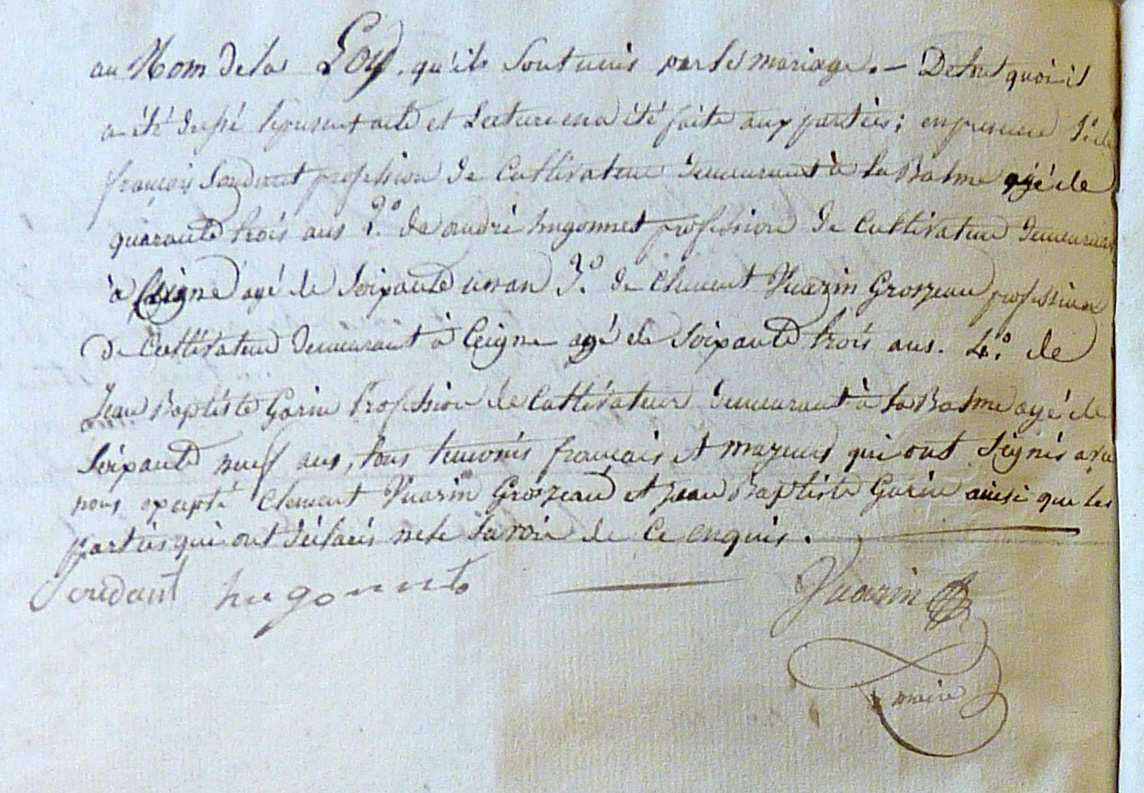 au Nom de la Loy, qu'ils sont unis par le mariage. — De tout quoi il
a été dressé le présent acte et Lecture en a été faite aux parties; en presence 1.º de
françois Joudant profession de Cultivateur demeurant à la Balme agé de
quarante trois ans 2.º de andré hugonnet profession de Cultivateur demeurant
à Ceigne agé de Soixante un an 3.º de Clement Vuarin Grosjean profession
de Cultivateur demeurant à Ceigne agé de Soixante trois ans. 4.º de
Jean Baptiste Garin Profession de Cultivateur demeurant à la Balme agé de
Soixante neuf ans, tous temoins français et majeurs qui ont Signés avec
nous excepté Clement Vuarin Grosjean et Jean Baptiste Garin ainsi que les
parties qui ont déclarés ne le Savoir de Ce enquis.
Joudant hugonnet Vuarin
maire